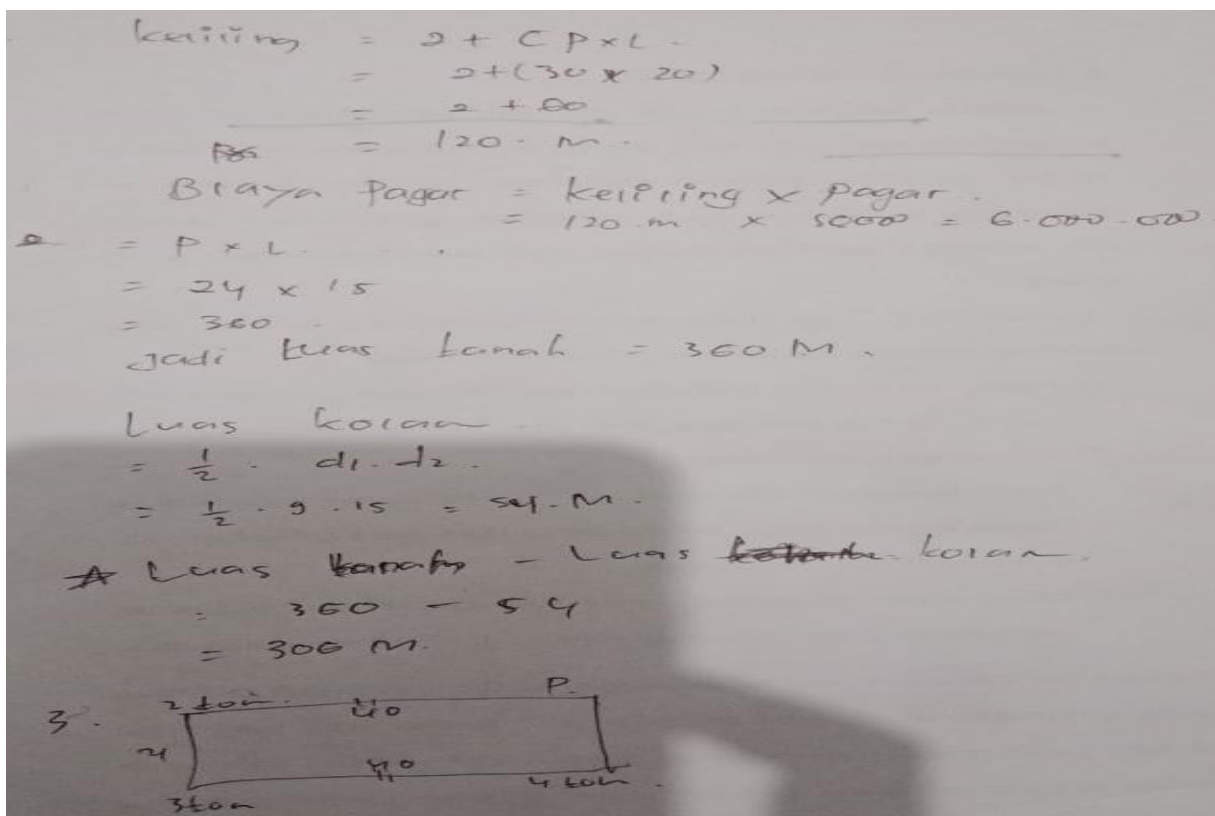 keliling = 2 + ( P x L .
= 2 + (30 x 20)
= 2 + 60
= 120 . m .
Biaya Pagar = keliling x pagar .
= 120 . m x 50000 = 6.000.000
2 = P x L .
= 24 x 15
= 360
Jadi luas tanah = 360 M .
Luas kolam
= 1/2 . d1 . d2 .
= 1/2 . 9 . 15 = 54 . M .
Luas tanah - Luas kolam .
= 360 - 54
= 306 M .
2 ton . P .
3 . 40
4
40 4 ton .
3 ton